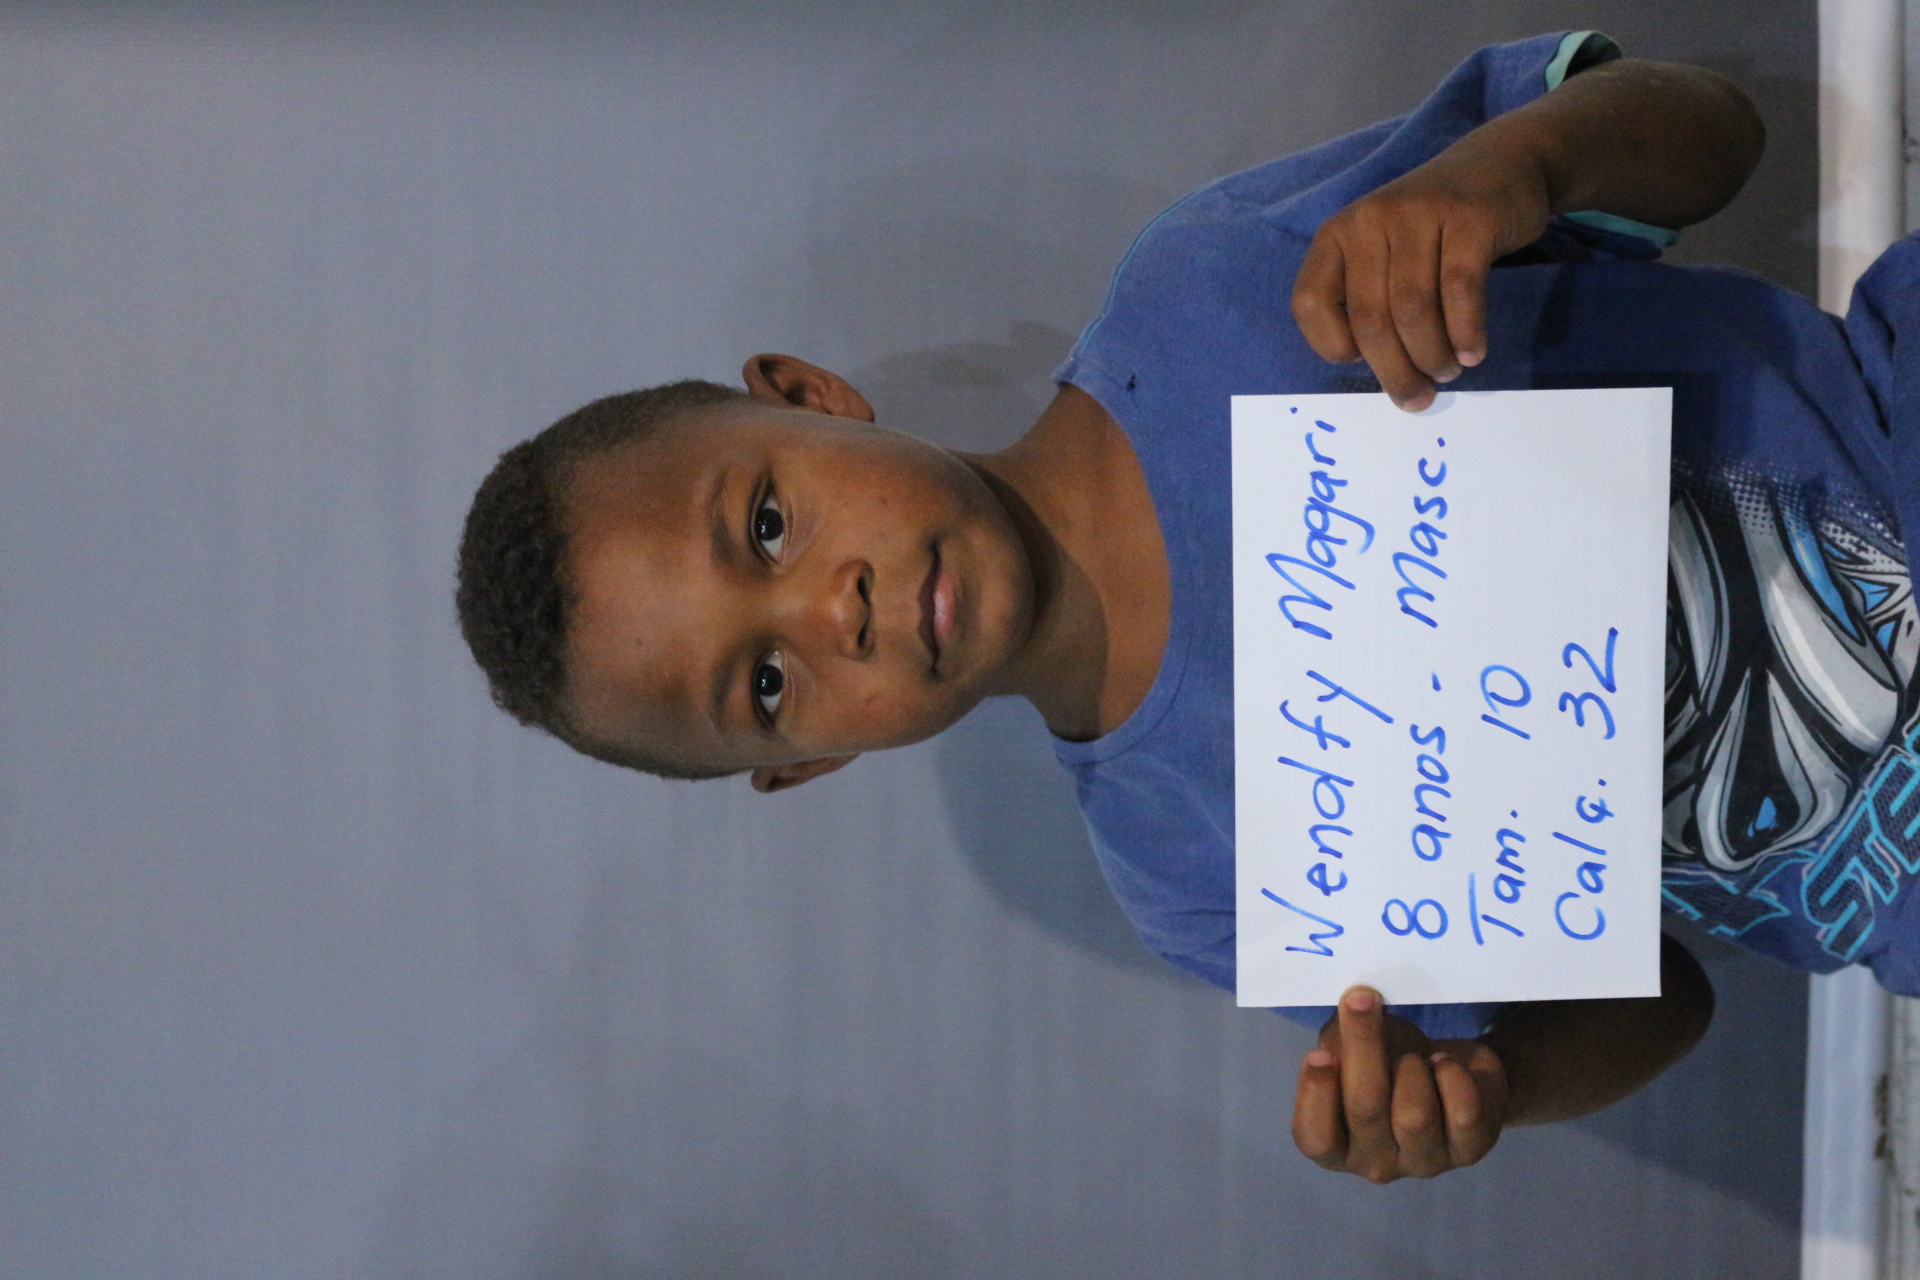 Wendfy Magari
8 anos - Masc.
Tam. 10
Calç. 32